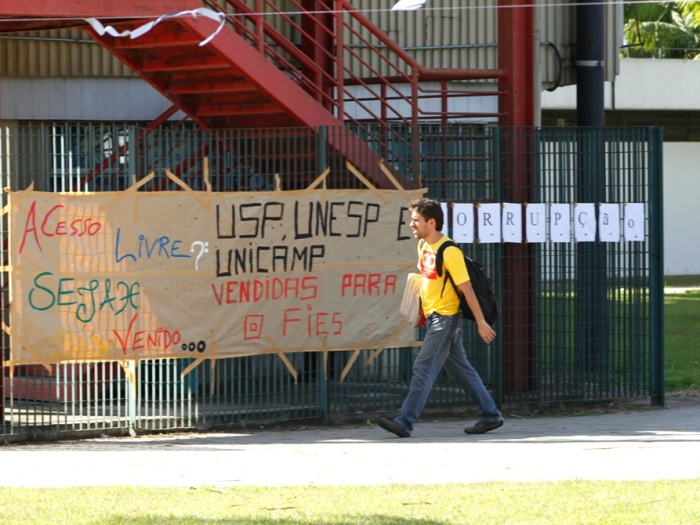 ACESSO
LIVRE?
SEJAX
VENIDO...
USP, UNESP E
UNICAMP
VENDIDAS PARA
FIES
ORRUPÇão